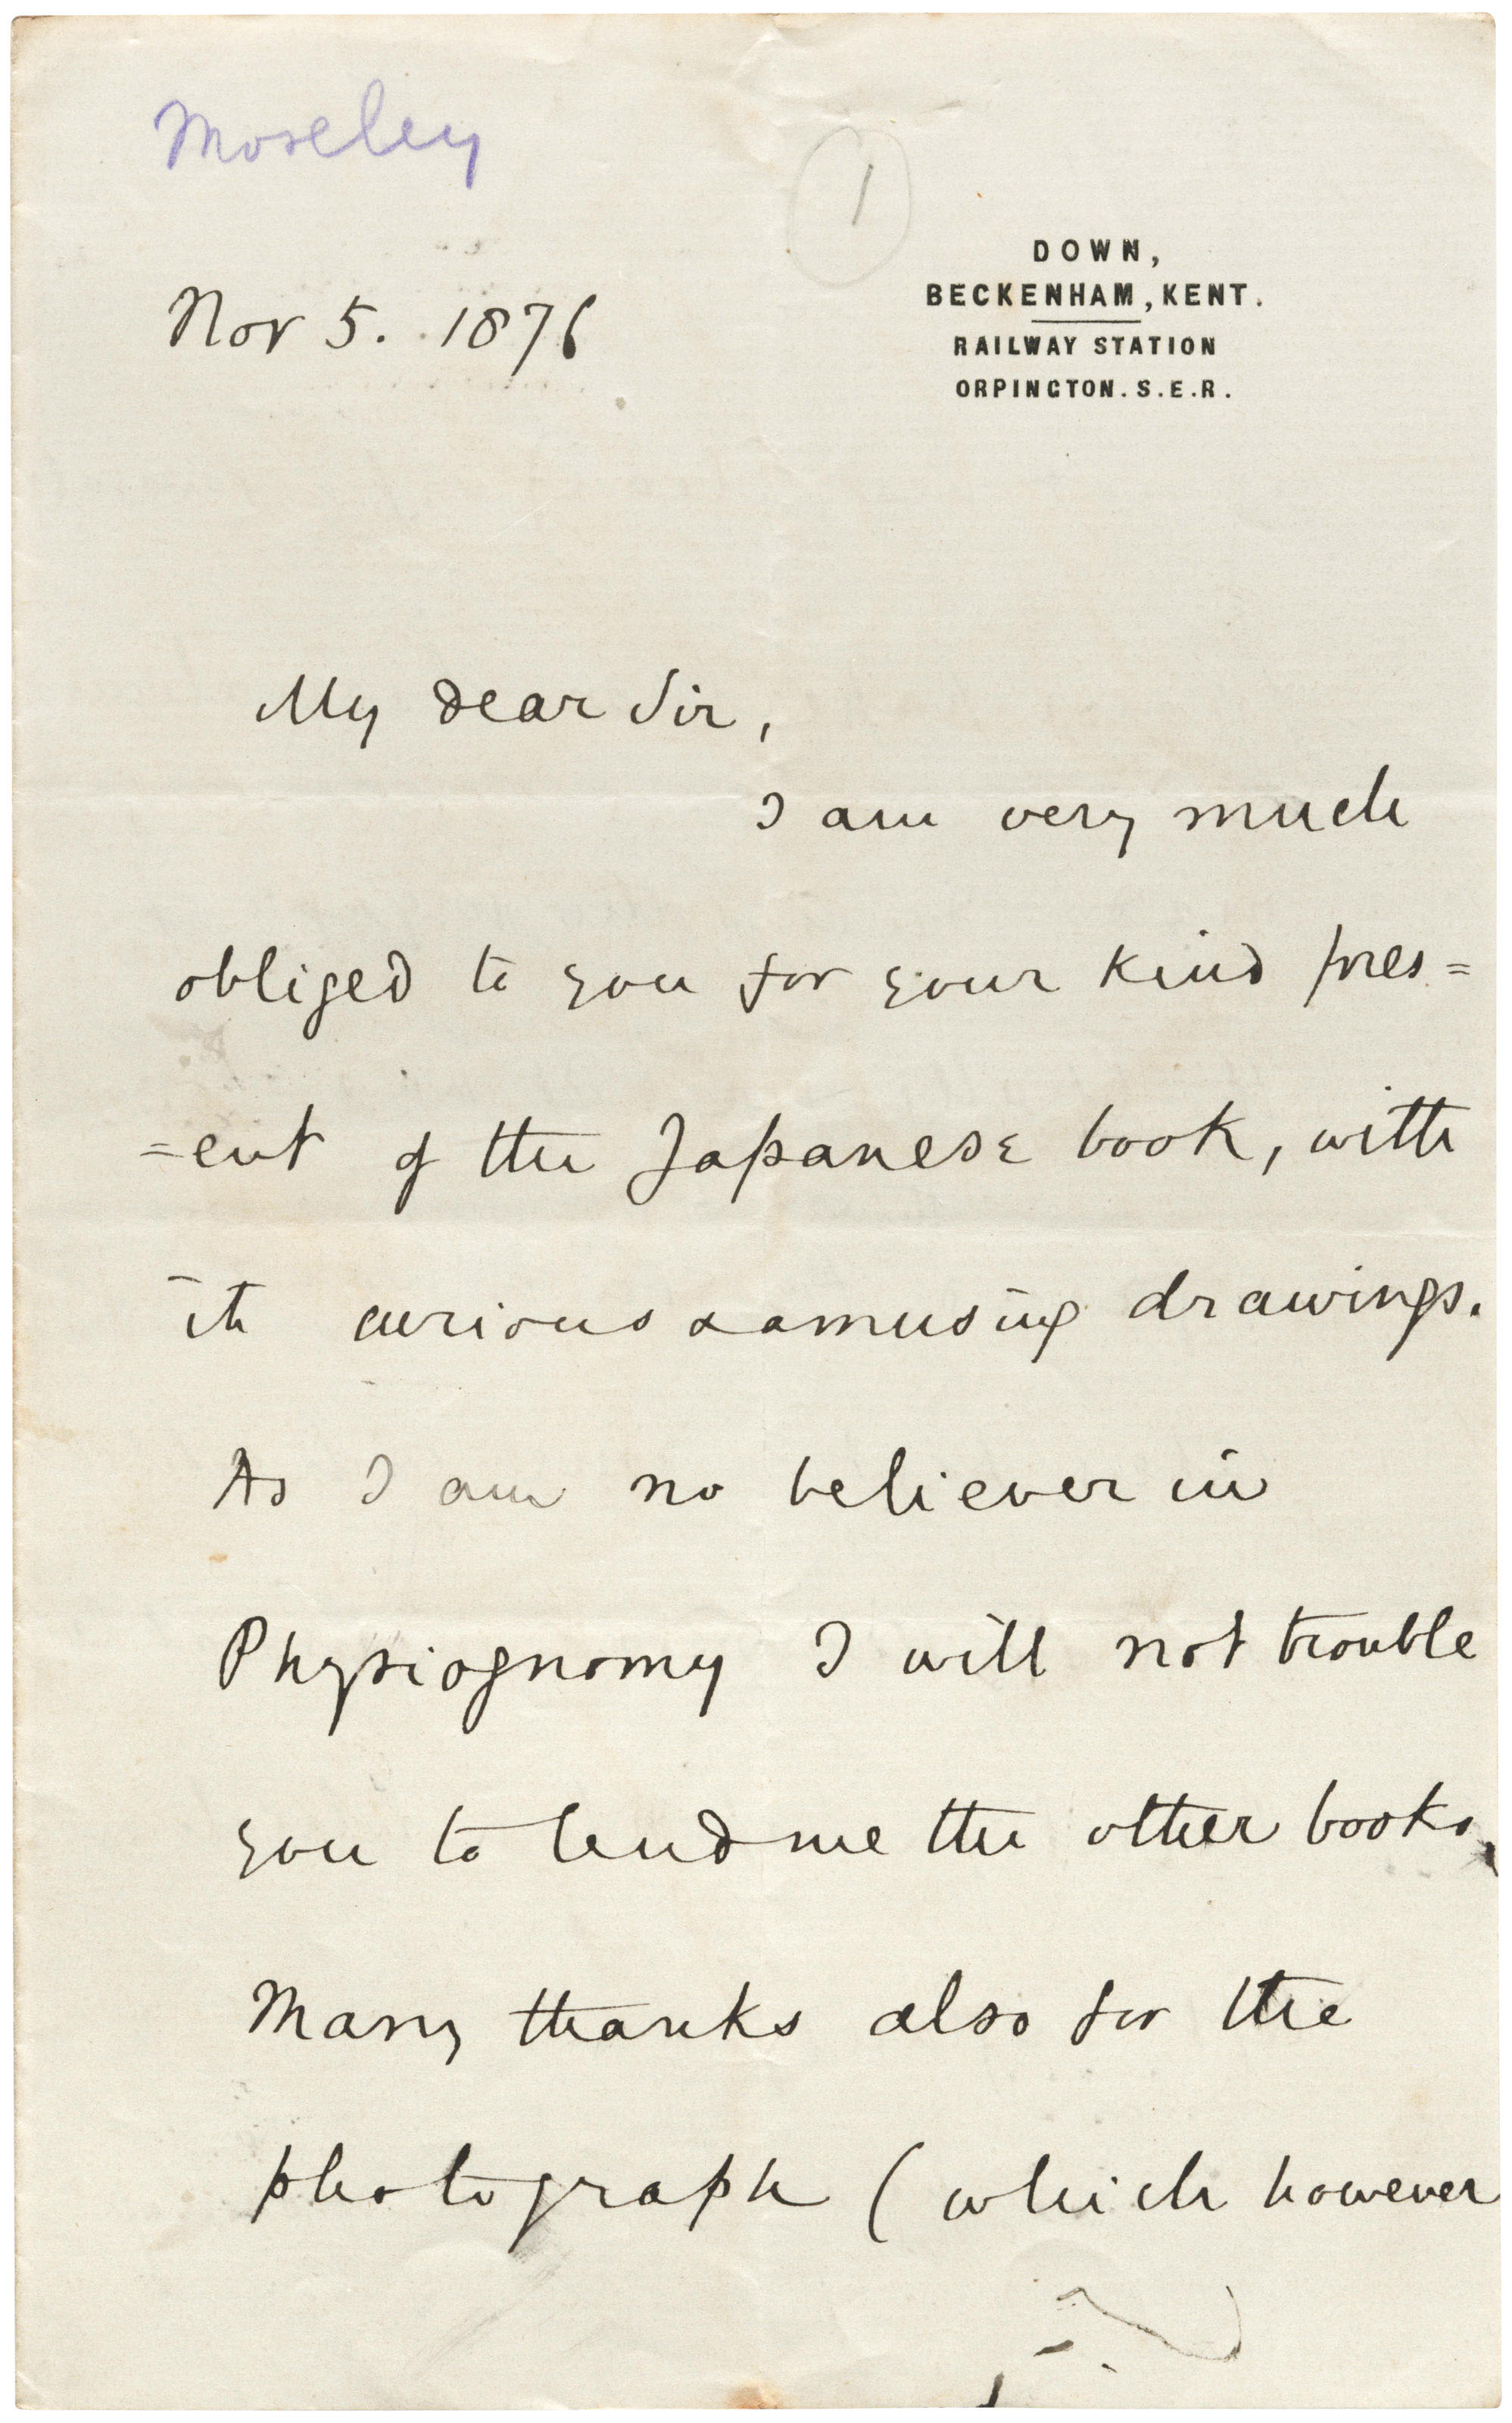 Moseley
1
DOWN,
BECKENHAM, KENT.
RAILWAY STATION
ORPINGTON. S.E.R.
Nov 5. 1876
My dear Sir,
I am very much
obliged to you for your kind pres=
=ent of the Japanese book, with
its curious & amusing drawings.
As I am no believer in
Physiognomy I will not trouble
you to lend me the other books.
Many thanks also for the
photograph (which however